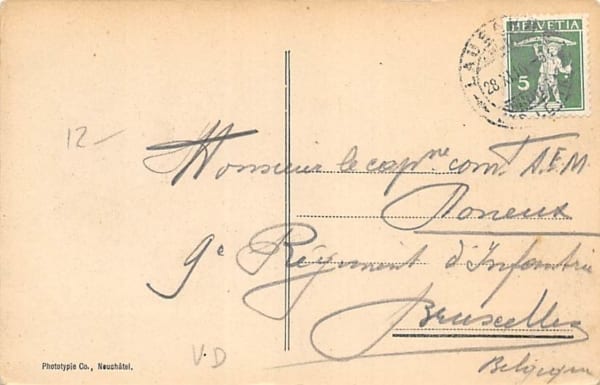 HELVETIA
5
LAUS
28.XI.
12-
Monsieur le capne com. A.E.M.
Doneux
9e Régiment d'Infantrie
Bruxelles
Belgique
V.D
Phototypie Co., Neuchâtel.